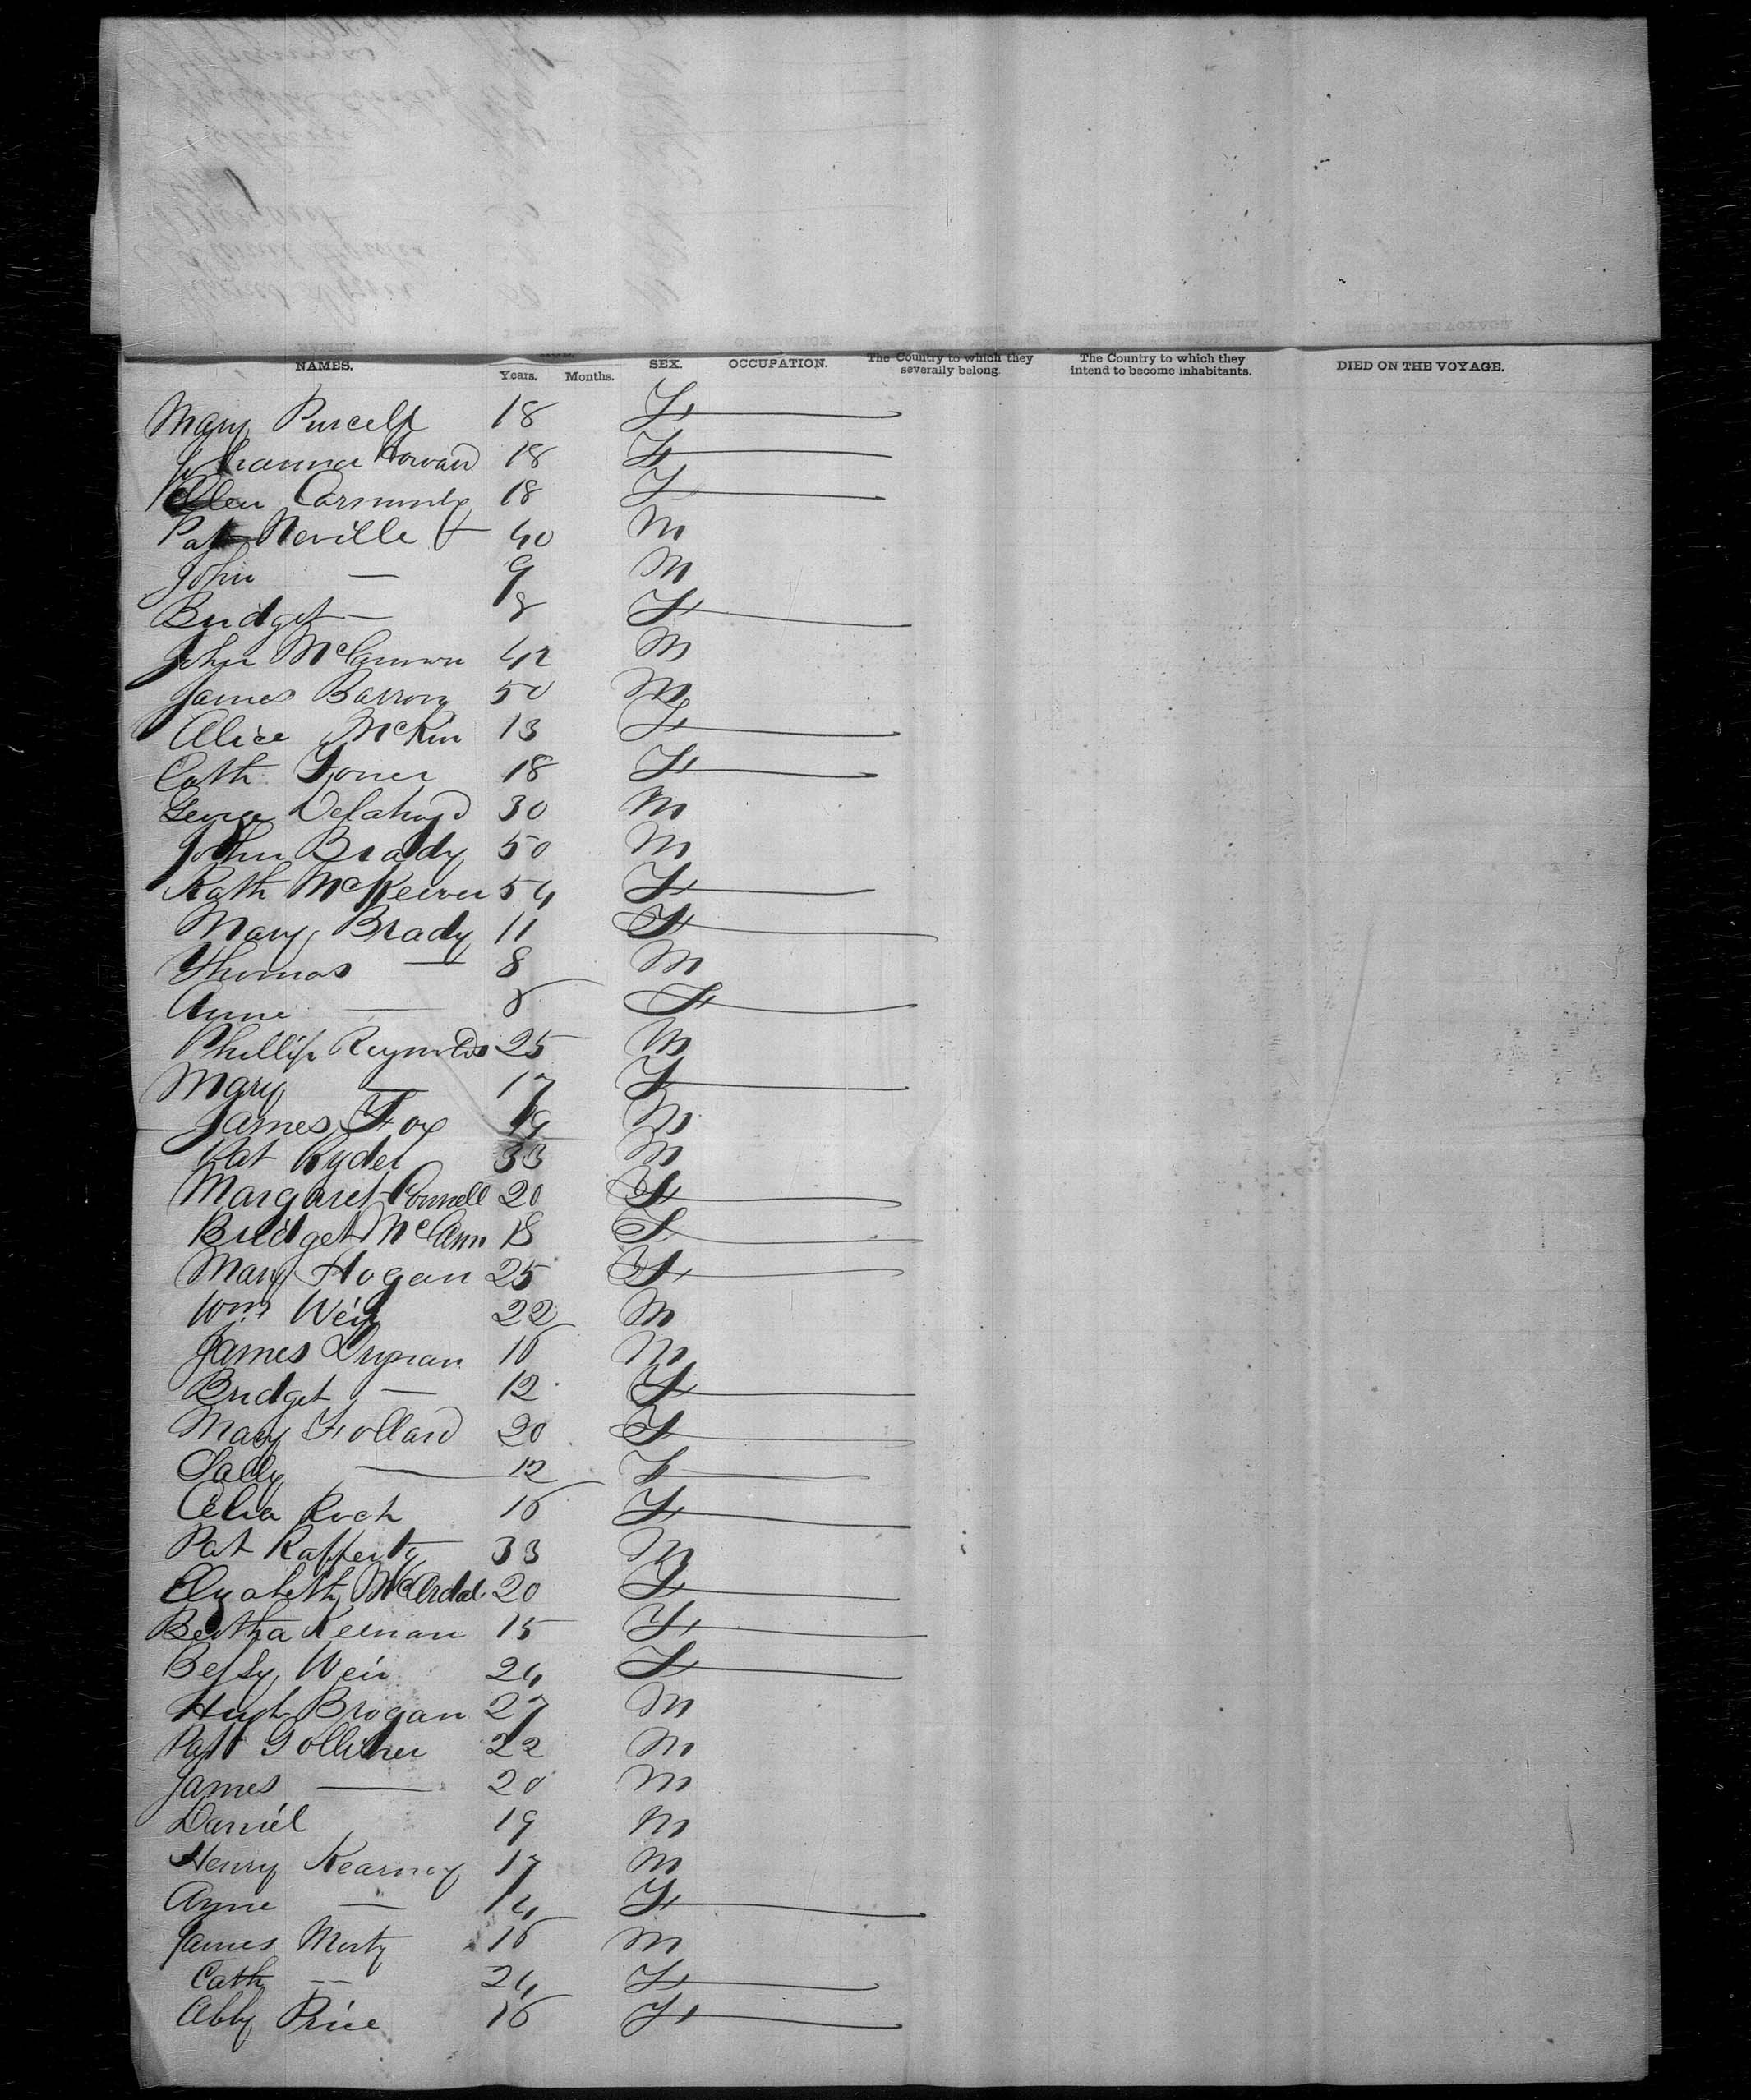 NAMES. Years. Months. SEX. OCCUPATION. The Country to which they severally belong. The Country to which they intend to become inhabitants. DIED ON THE VOYAGE.
Mary Purcell 18 F
Johanna Howard 18 F
Ellen 18 F
Pat Neville 40 M
John — 9 M
Bridget — 8 F
John 42 M
James Barron 50 M
Alice McKin 13 F
Cath 18 F
George Delahoyd 30 M
John Brady 50 M
Kath McKeever 54 F
Mary Brady 11 F
Thomas — 8 M
Anne — F
Phillip Reynolds 25 M
Mary — 17 F
James Fox 19 M
Pat Ryder 33 M
Margaret Connell 20 F
Bridget McCann 18 F
Mary Hogan 25 F
Wm Weir 22 M
James 16 M
Bridget — 12 F
Mary Follard 20 F
Sally — 12 F
Celia Roch 16 F
Pat Rafferty 33 M
Elizabeth McArdal 20 F
Bertha Keenan 15 F
Betsy Weir 24 F
Hugh Brogan 27 M
Pat Golliher 22 M
James — 20 M
Daniel 19 M
Henry Kearney 17 M
Anne — 14 F
James Morty 16 M
Cath — 24 F
Abby Price 16 F